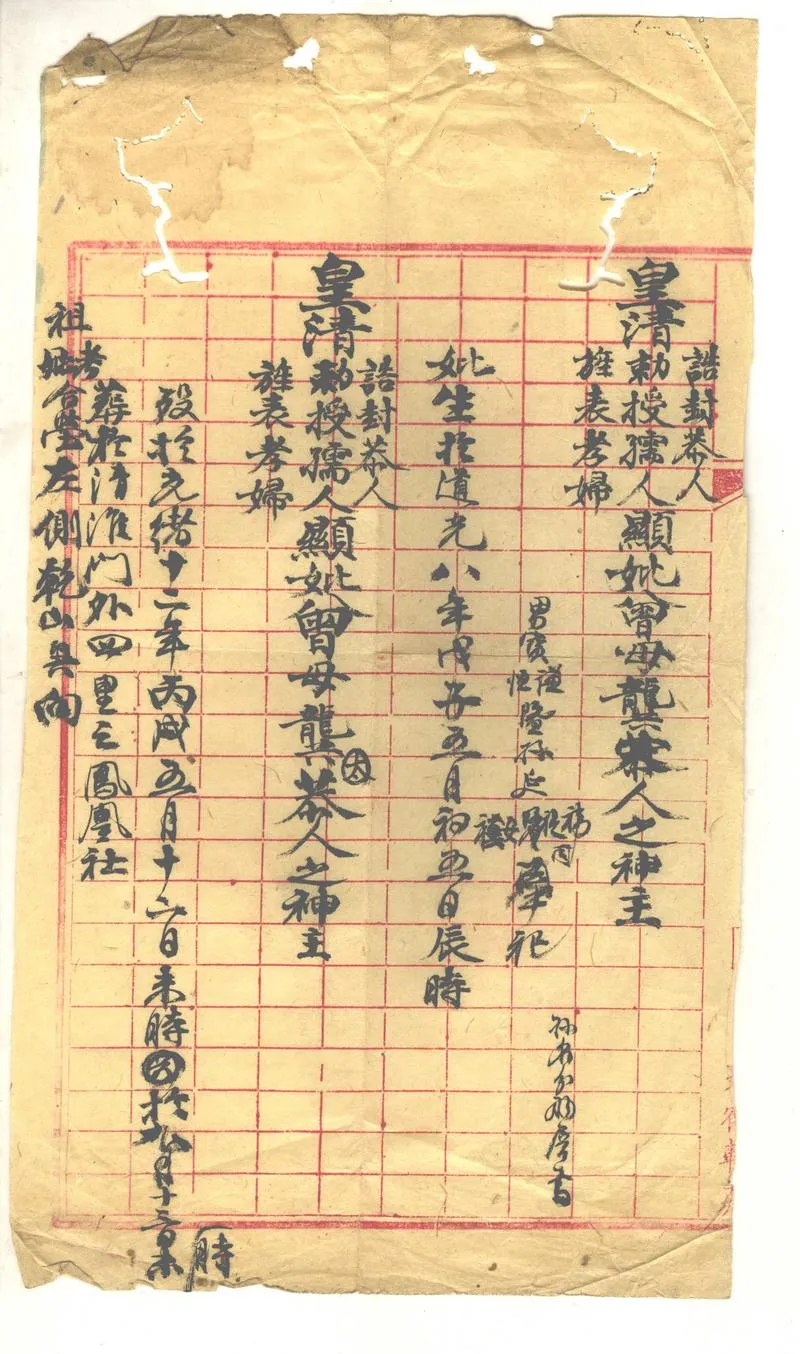 誥封恭人
皇清勅授孺人顯妣曾母龔恭人之神主
旌表孝婦
男寳謙恒暨孫延
奉祀
妣生於道光八年戊子五月初五日辰時
誥封恭人
皇清勅授孺人顯妣曾母龔太恭人之神主
旌表孝婦
歿於光緒十二年丙戌五月十六日未時
於九月十三日未時
葬於清淮门外四里之鳳凰社
祖考妣合塋左側乾山巽向